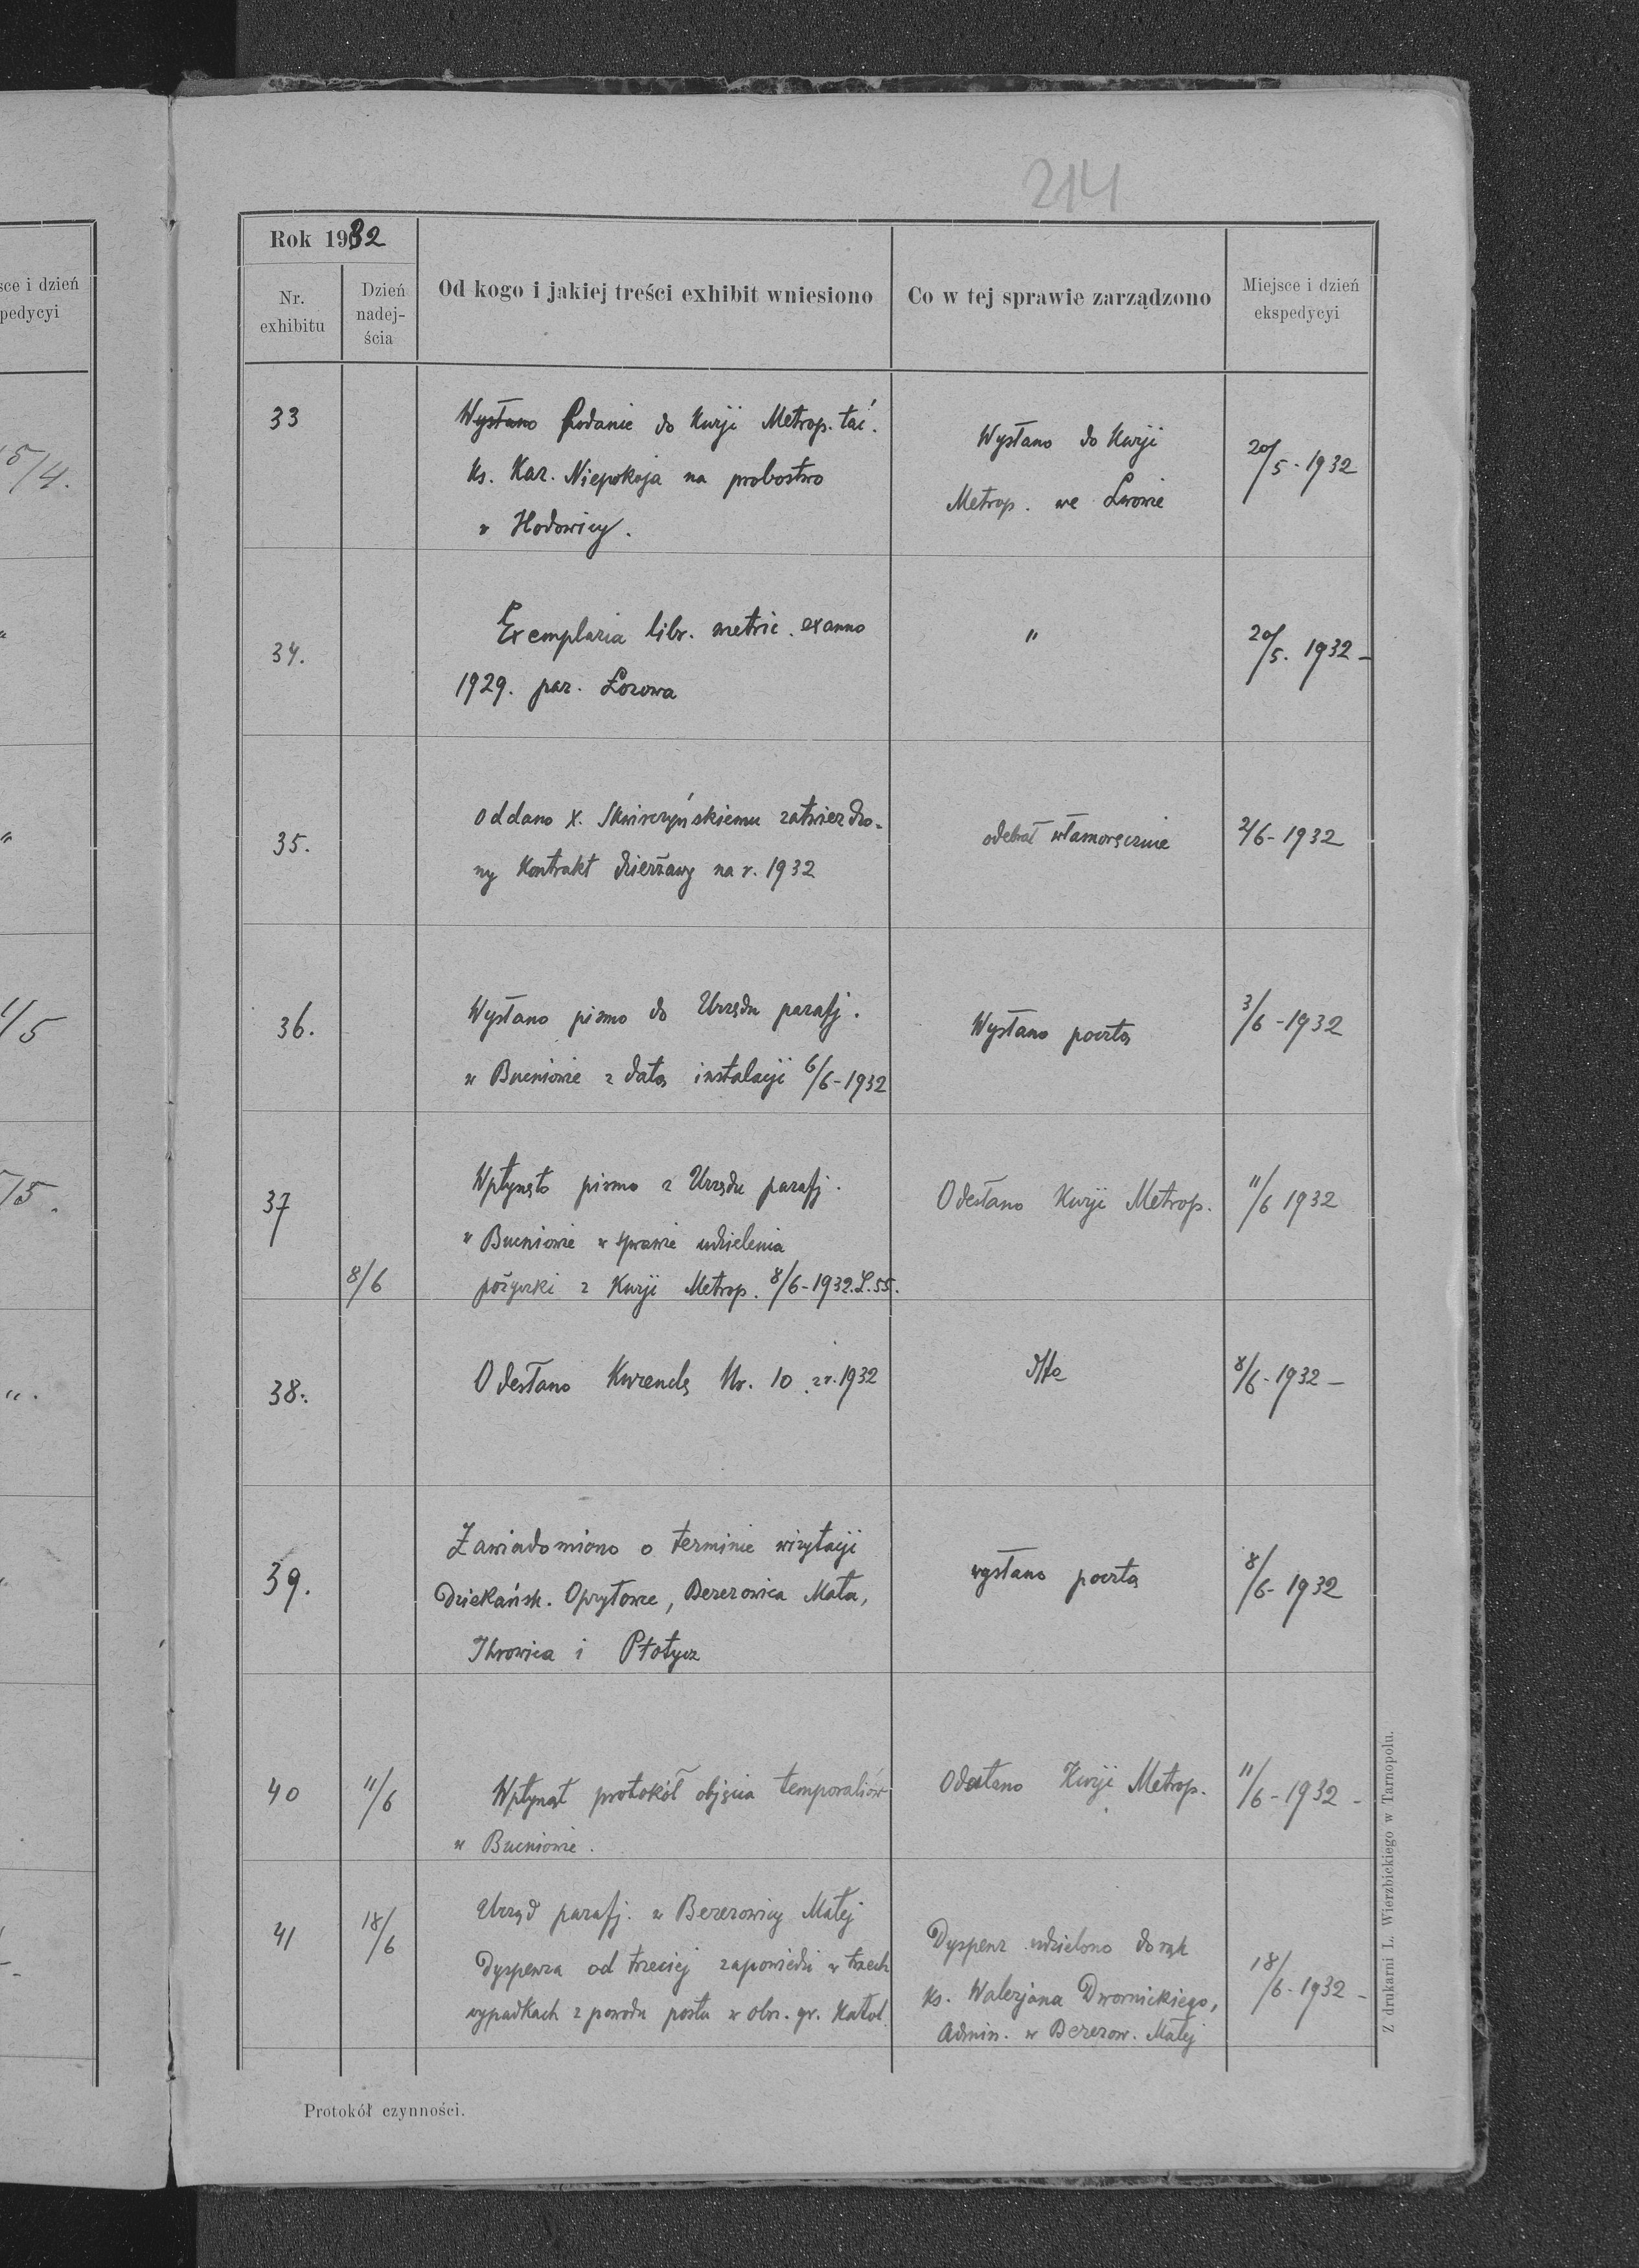 214
Rok 1932
Nr. exhibitu
Dzień nadejścia
Od kogo i jakiej treści exhibit wniesiono
Co w tej sprawie zarządzono
Miejsce i dzień ekspedycyi
sce i dzień
pedycyi
5/4.
1/5
/5.
33
Wysłano Podanie do Kurji Metrop. łać.
Ks. Kar. Niepokoja na probostwo
w Hodowicy.
Wysłano do Kurji
Metrop. we Lwowie
20/5. 1932
34.
Exemplaria libr. metric. ex anno
1929. par. Łozowa
"
20/5. 1932 -
35.
Oddano X. Skwirczyńskiemu zatwierdzo-
ny Kontrakt dzierżawy na r. 1932
odebrał własnoręcznie
2/6 - 1932
36.
Wysłano pismo do Urzędu parafj.
w Bucniowie z datą instalacji 6/6 - 1932
Wysłano pocztą
3/6 - 1932
37
Wpłynęło pismo z Urzędu parafj.
w Bucniowie w sprawie udzielenia
8/6
pożyczki z Kurji Metrop. 8/6 - 1932. L. 55.
Odesłano Kurji Metrop.
11/6 1932
38.
Odesłano Kurendę Nr. 10 z r. 1932
dtto
8/6 - 1932 -
39.
Zawiadomiono o terminie wizytacji
Dziekańsk. Opryłowce, Berezowica Mała,
Ihrowica i Płotycz
wysłano pocztą
8/6 - 1932
40
11/6
Wpłynął protokół objęcia temporaliów
w Bucniowie.
Odesłano Kurji Metrop.
11/6 - 1932 -
41
18/6
Urząd parafj. w Berezowicy Małej
Dyspenza od trzeciej zapowiedzi w trzech
wypadkach z powodu postu w obr. gr. Katol.
Dyspenz udzielono do rąk
Ks. Walerjana Dwornickiego,
Admin. w Berezow. Małej
18/6 - 1932 -
Protokół czynności.
Z drukarni L. Wierzbickiego w Tarnopolu.